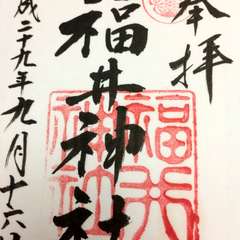 奉拝
福井神社
成二十九年九月十六
福井
神社